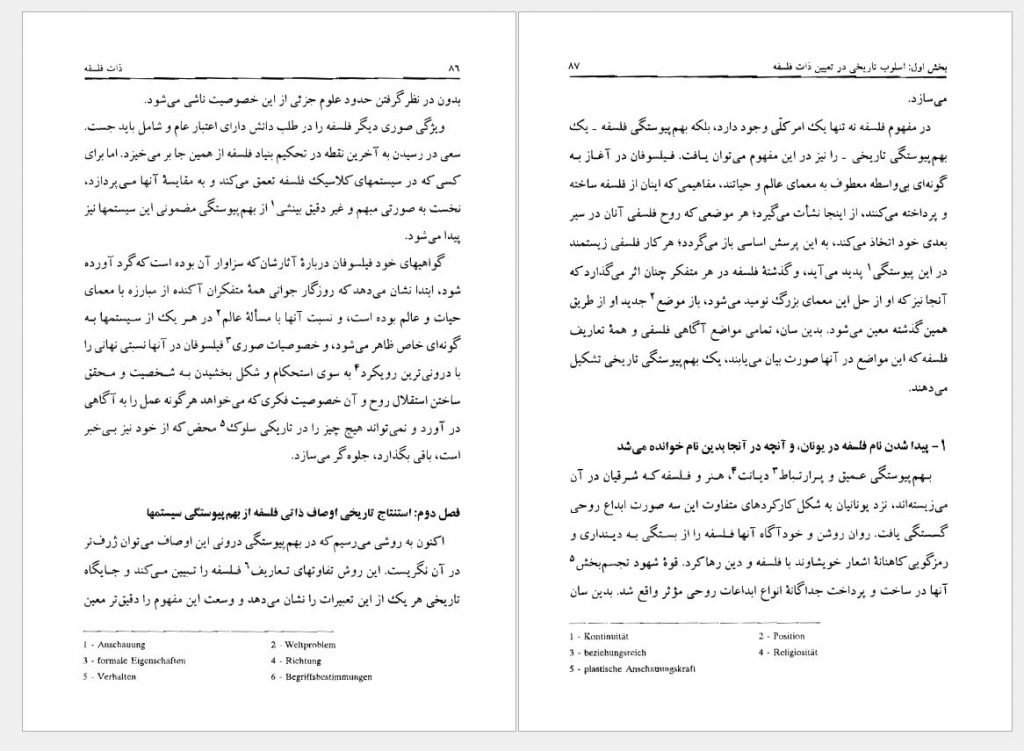 ذات فلسفه ۸۶
بدون در نظر گرفتن حدود علوم جزئی از این خصوصیت ناشی می‌شود.
ویژگی صوری دیگر فلسفه را در طلب دانش دارای اعتبار عام و شامل باید جست.
سعی در رسیدن به آخرین نقطه در تحکیم بنیاد فلسفه از همین جا بر می‌خیزد. اما برای
کسی که در سیستمهای کلاسیک فلسفه تعمق می‌کند و به مقایسهٔ آنها می‌پردازد،
نخست به صورتی مبهم و غیر دقیق بینشی۱ از بهم‌پیوستگی مضمونی این سیستمها نیز
پیدا می‌شود.
گواهیهای خود فیلسوفان دربارهٔ آثارشان که سزاوار آن بوده است که گرد آورده
شود، ابتدا نشان می‌دهد که روزگار جوانی همهٔ متفکران آکنده از مبارزه با معمای
حیات و عالم بوده است، و نسبت آنها با مسألهٔ عالم۲ در هر یک از سیستمها به
گونه‌ای خاص ظاهر می‌شود، و خصوصیات صوری۳ فیلسوفان در آنها نسبتی نهانی را
با درونی‌ترین رویکرد۴ به سوی استحکام و شکل بخشیدن به شخصیت و محقق
ساختن استقلال روح و آن خصوصیت فکری که می‌خواهد هرگونه عمل را به آگاهی
در آورد و نمی‌تواند هیچ چیز را در تاریکی سلوک۵ محض که از خود نیز بی‌خبر
است، باقی بگذارد، جلوه‌گر می‌سازد.
فصل دوم: استنتاج تاریخی اوصاف ذاتی فلسفه از بهم‌پیوستگی سیستمها
اکنون به روشی می‌رسیم که در بهم‌پیوستگی درونی این اوصاف می‌توان ژرف‌تر
در آن نگریست. این روش تفاوتهای تعاریف۶ فلسفه را تبیین می‌کند و جایگاه
تاریخی هر یک از این تعبیرات را نشان می‌دهد و وسعت این مفهوم را دقیق‌تر معین
1 - Anschauung 2 - Weltproblem
3 - formale Eigenschaften 4 - Richtung
5 - Verhalten 6 - Begriffsbestimmungen
بخش اول: اسلوب تاریخی در تعیین ذات فلسفه ۸۷
می‌سازد.
در مفهوم فلسفه نه تنها یک امر کلّی وجود دارد، بلکه بهم‌پیوستگی فلسفه ـ یک
بهم‌پیوستگی تاریخی ـ را نیز در این مفهوم می‌توان یافت. فیلسوفان در آغاز به
گونه‌ای بی‌واسطه معطوف به معمای عالم و حیاتند، مفاهیمی که اینان از فلسفه ساخته
و پرداخته می‌کنند، از اینجا نشأت می‌گیرد؛ هر موضعی که روح فلسفی آنان در سیر
بعدی خود اتخاذ می‌کند، به این پرسش اساسی باز می‌گردد؛ هر کار فلسفی زیستمند
در این پیوستگی۱ پدید می‌آید، و گذشتهٔ فلسفه در هر متفکر چنان اثر می‌گذارد که
آنجا نیز که او از حل این معمای بزرگ نومید می‌شود، باز موضع۲ جدید او از طریق
همین گذشته معین می‌شود. بدین سان، تمامی مواضع آگاهی فلسفی و همهٔ تعاریف
فلسفه که این مواضع در آنها صورت بیان می‌یابند، یک بهم‌پیوستگی تاریخی تشکیل
می‌دهند.
۱ - پیدا شدن نام فلسفه در یونان، و آنچه در آنجا بدین نام خوانده می‌شد
بهم‌پیوستگی عمیق و پرارتباط۳ دیانت۴، هنر و فلسفه که شرقیان در آن
می‌زیسته‌اند، نزد یونانیان به شکل کارکردهای متفاوت این سه صورت ابداع روحی
گسستگی یافت. روان روشن و خودآگاه آنها فلسفه را از بستگی به دینداری و
رمزگویی کاهنانهٔ اشعار خویشاوند با فلسفه و دین رها کرد. قوهٔ شهود تجسم‌بخش۵
آنها در ساخت و پرداخت جداگانهٔ انواع ابداعات روحی مؤثر واقع شد. بدین سان
1 - Kontinuität 2 - Position
3 - beziehungsreich 4 - Religiosität
5 - plastische Anschauungskraft